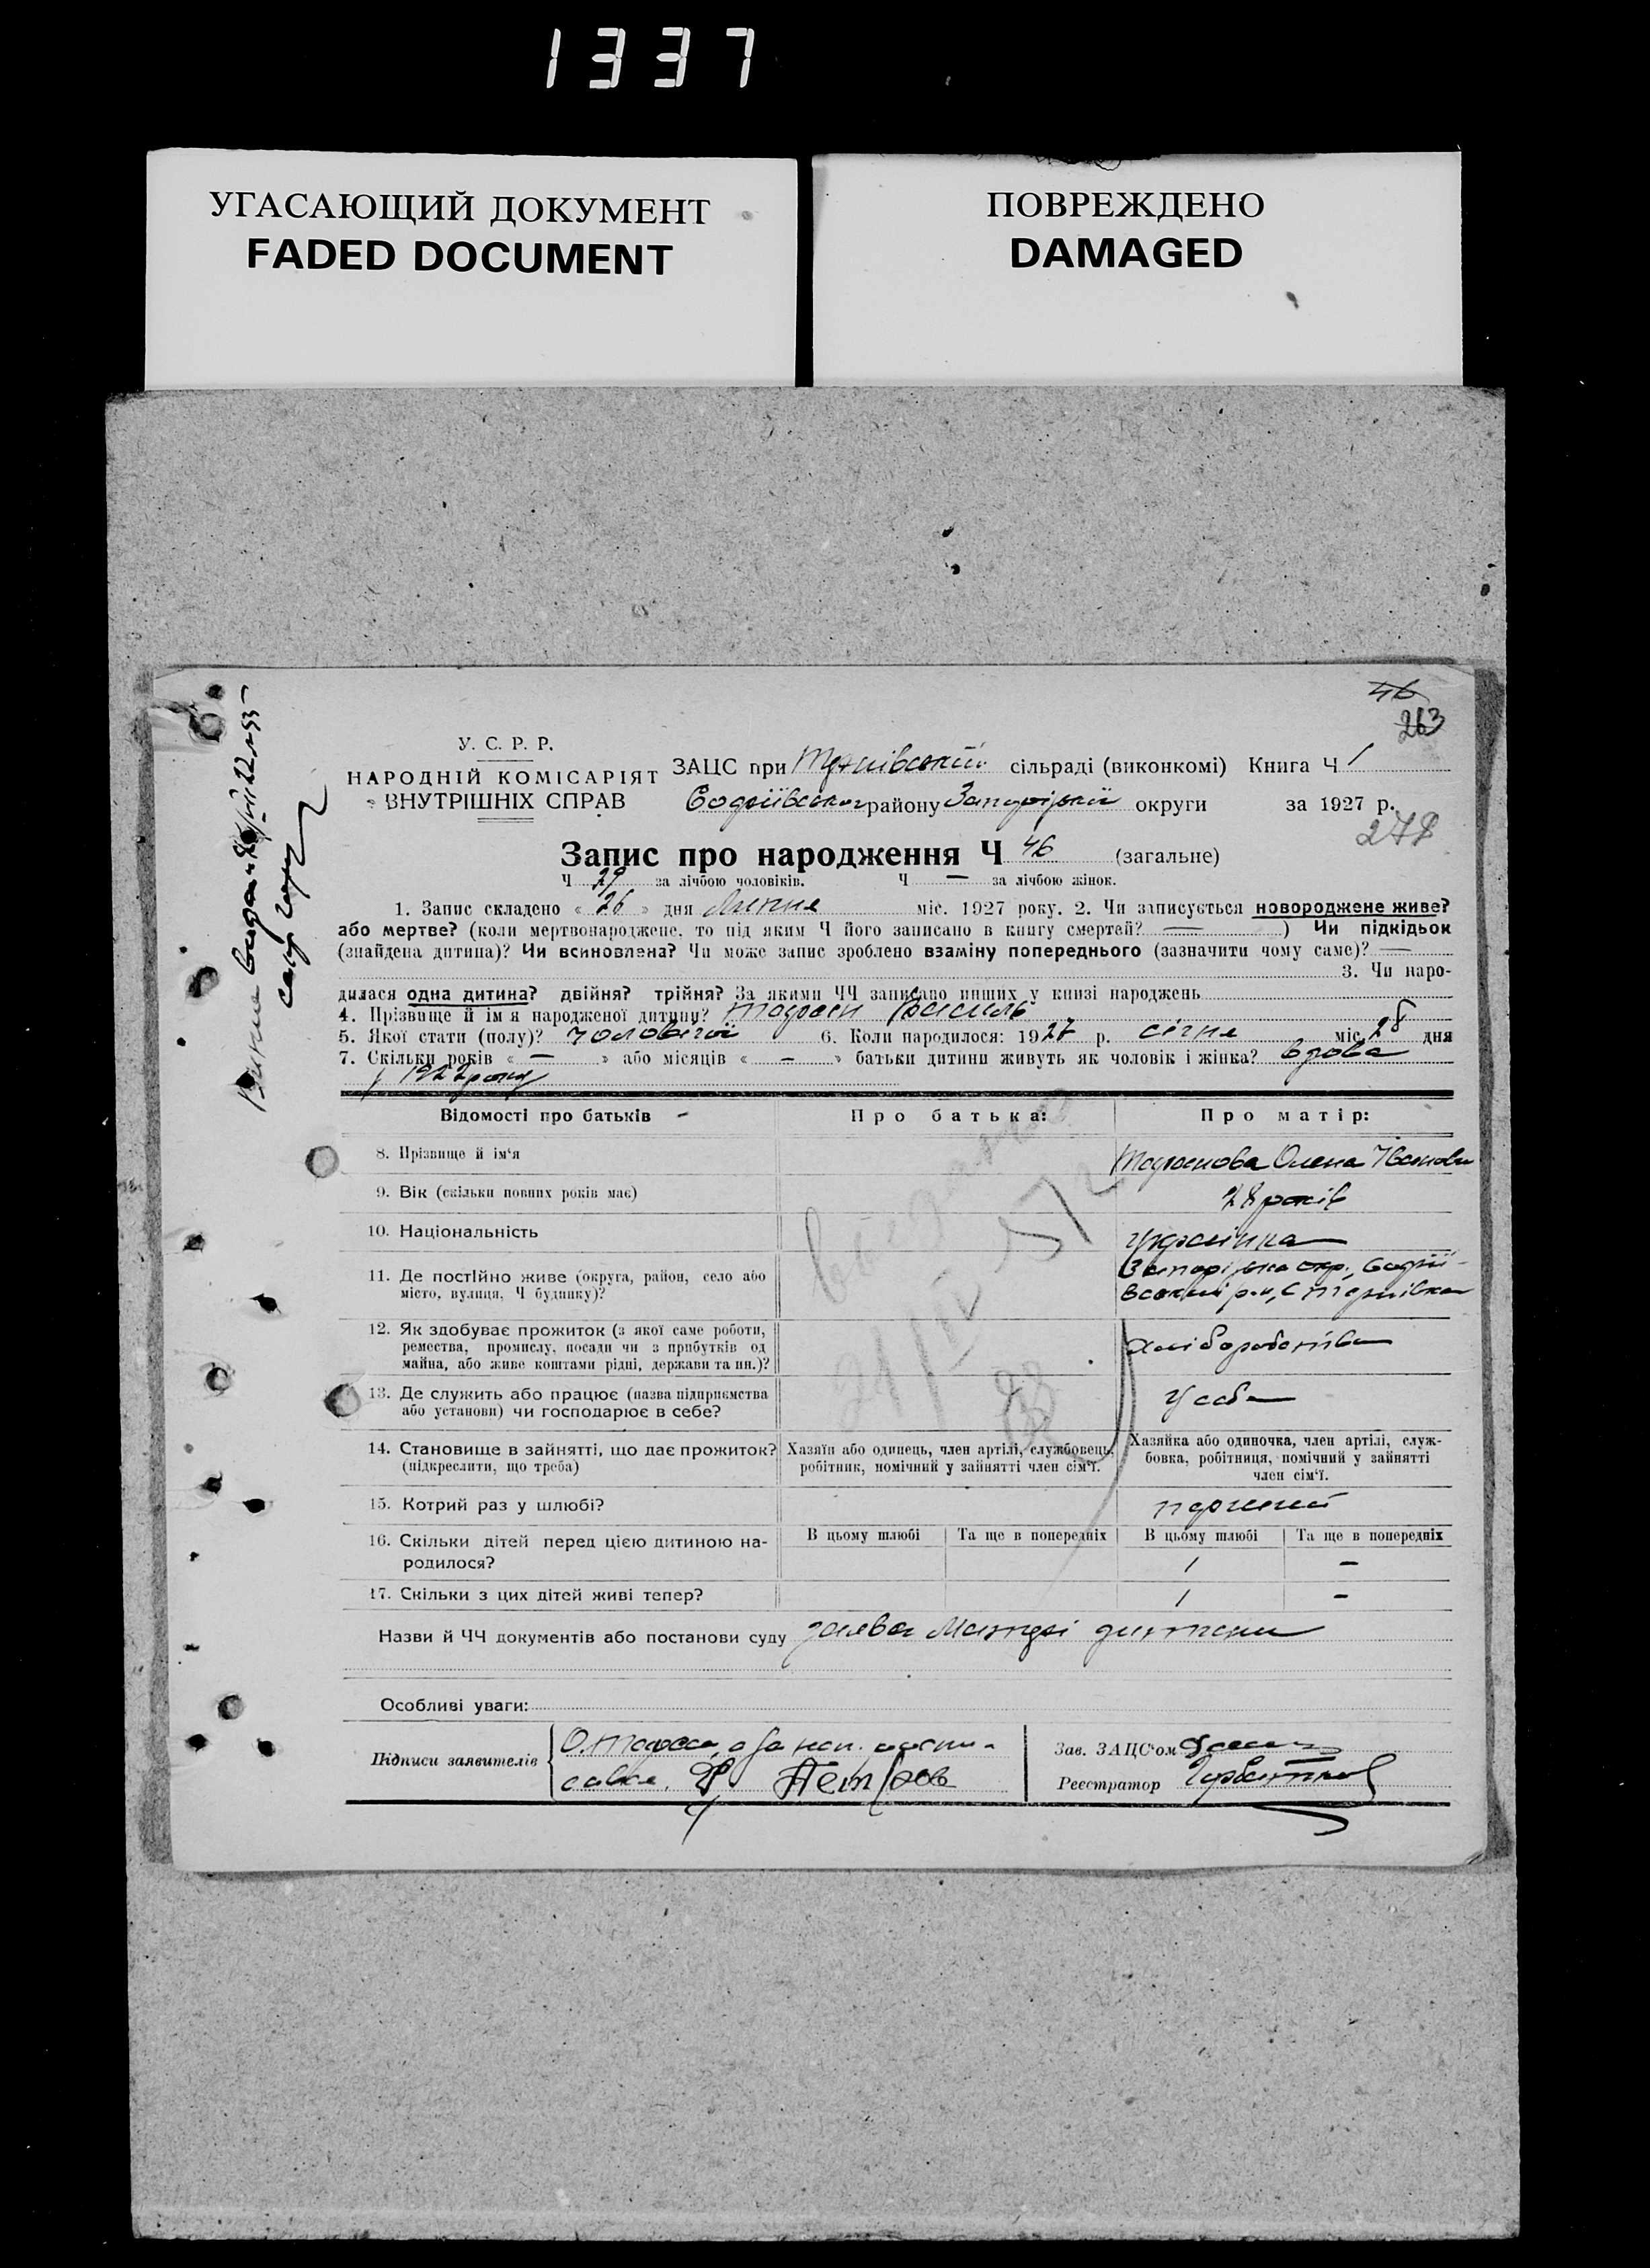 1337
УГАСАЮЩИЙ ДОКУМЕНТ
FADED DOCUMENT
ПОВРЕЖДЕНО
DAMAGED
46
263
У. С. Р. Р.
НАРОДНІЙ КОМІСАРІЯТ
ВНУТРІШНІХ СПРАВ
ЗАЦС при сільраді (виконкомі) Книга Ч 1
району Запорізької округи за 1927 р.
278
Запис про народження Ч 46 (загальне)
Ч 29 за лічбою чоловіків. Ч — за лічбою жінок.
1. Запис складено « 26 » дня міс. 1927 року. 2. Чи записується новороджене живе?
або мертве? (коли мертвонароджене, то під яким Ч його записано в книгу смертей? — ) Чи підкідьок
(знайдена дитина)? Чи всиновлена? Чи може запис зроблено взаміну попереднього (зазначити чому саме)? —
3. Чи наро-
дилася одна дитина? двійня? трійня? За якими ЧЧ записано инших у книзі народжень
4. Прізвище й ім'я народженої дитини? Василь
5. Якої стати (полу)? чоловічої 6. Коли народилося: 1927 р. січня міс. 28 дня
7. Скільки років « — » або місяців « — » батьки дитини живуть як чоловік і жінка? вдова
з 1922 року
Відомості про батьків Про батька: Про матір:
8. Прізвище й ім'я Олена
9. Вік (скільки повних років має) 28 років
10. Національність українка
11. Де постійно живе (округа, район, село або
місто, вулиця, Ч будинку)?
Запорізька окр.,
12. Як здобуває прожиток (з якої саме роботи,
ремества, промислу, посади чи з прибутків од
майна, або живе коштами рідні, держави та ин.)?
хліборобство
13. Де служить або працює (назва підприємства
або установи) чи господарює в себе?
у себе
14. Становище в зайнятті, що дає прожиток?
(підкреслити, що треба)
Хазяїн або одинець, член артілі, службовець,
робітник, помічний у зайнятті член сім'ї.
Хазяйка або одиночка, член артілі, служ-
бовка, робітниця, помічний у зайнятті
член сім'ї.
15. Котрий раз у шлюбі? перший
16. Скільки дітей перед цією дитиною на-
родилося?
В цьому шлюбі Та ще в попередніх В цьому шлюбі Та ще в попередніх
1 —
17. Скільки з цих дітей живі тепер? 1 —
Назви й ЧЧ документів або постанови суду заява матері дитини
Особливі уваги:
Підписи заявителів
Петров
Зав. ЗАЦС'ом
Реєстратор